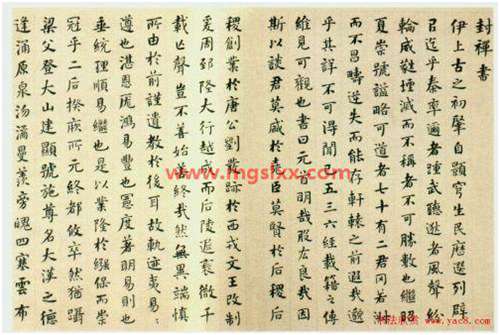 封禪書
伊上古之初肇自顥穹生民歷選列辟
以迄乎秦率邇者踵武聽逖者風聲紛
輪威蕤堙滅而不稱者不可勝數也繼昭
夏崇號謚略可道者七十有二君罔若淑
而不昌疇逆失而能存軒轅之前遐哉邈
乎其詳不可得聞已五三六經載籍之傳
維見可觀也書曰元首明哉股肱良哉因
斯以談君莫盛於堯臣莫賢於后稷后
稷創業於唐公劉發跡於西戎文王改制
爰周郅隆大行越成而后陵遲衰微千
載亡聲豈不善始善終哉然無異端慎
所由於前謹遺教於後耳故軌迹夷易易
遵也湛恩厖鴻易豐也憲度著明易則也
垂統理順易繼也是以業隆於繈保而崇
冠乎二后揆厥所元終都攸卒然猶躡
梁父登大山建顯號施尊名大漢之德
逢涌原泉沕潏曼羨旁魄四塞雲布
www.mgslxx.com
书法欣赏 www.yac8.com